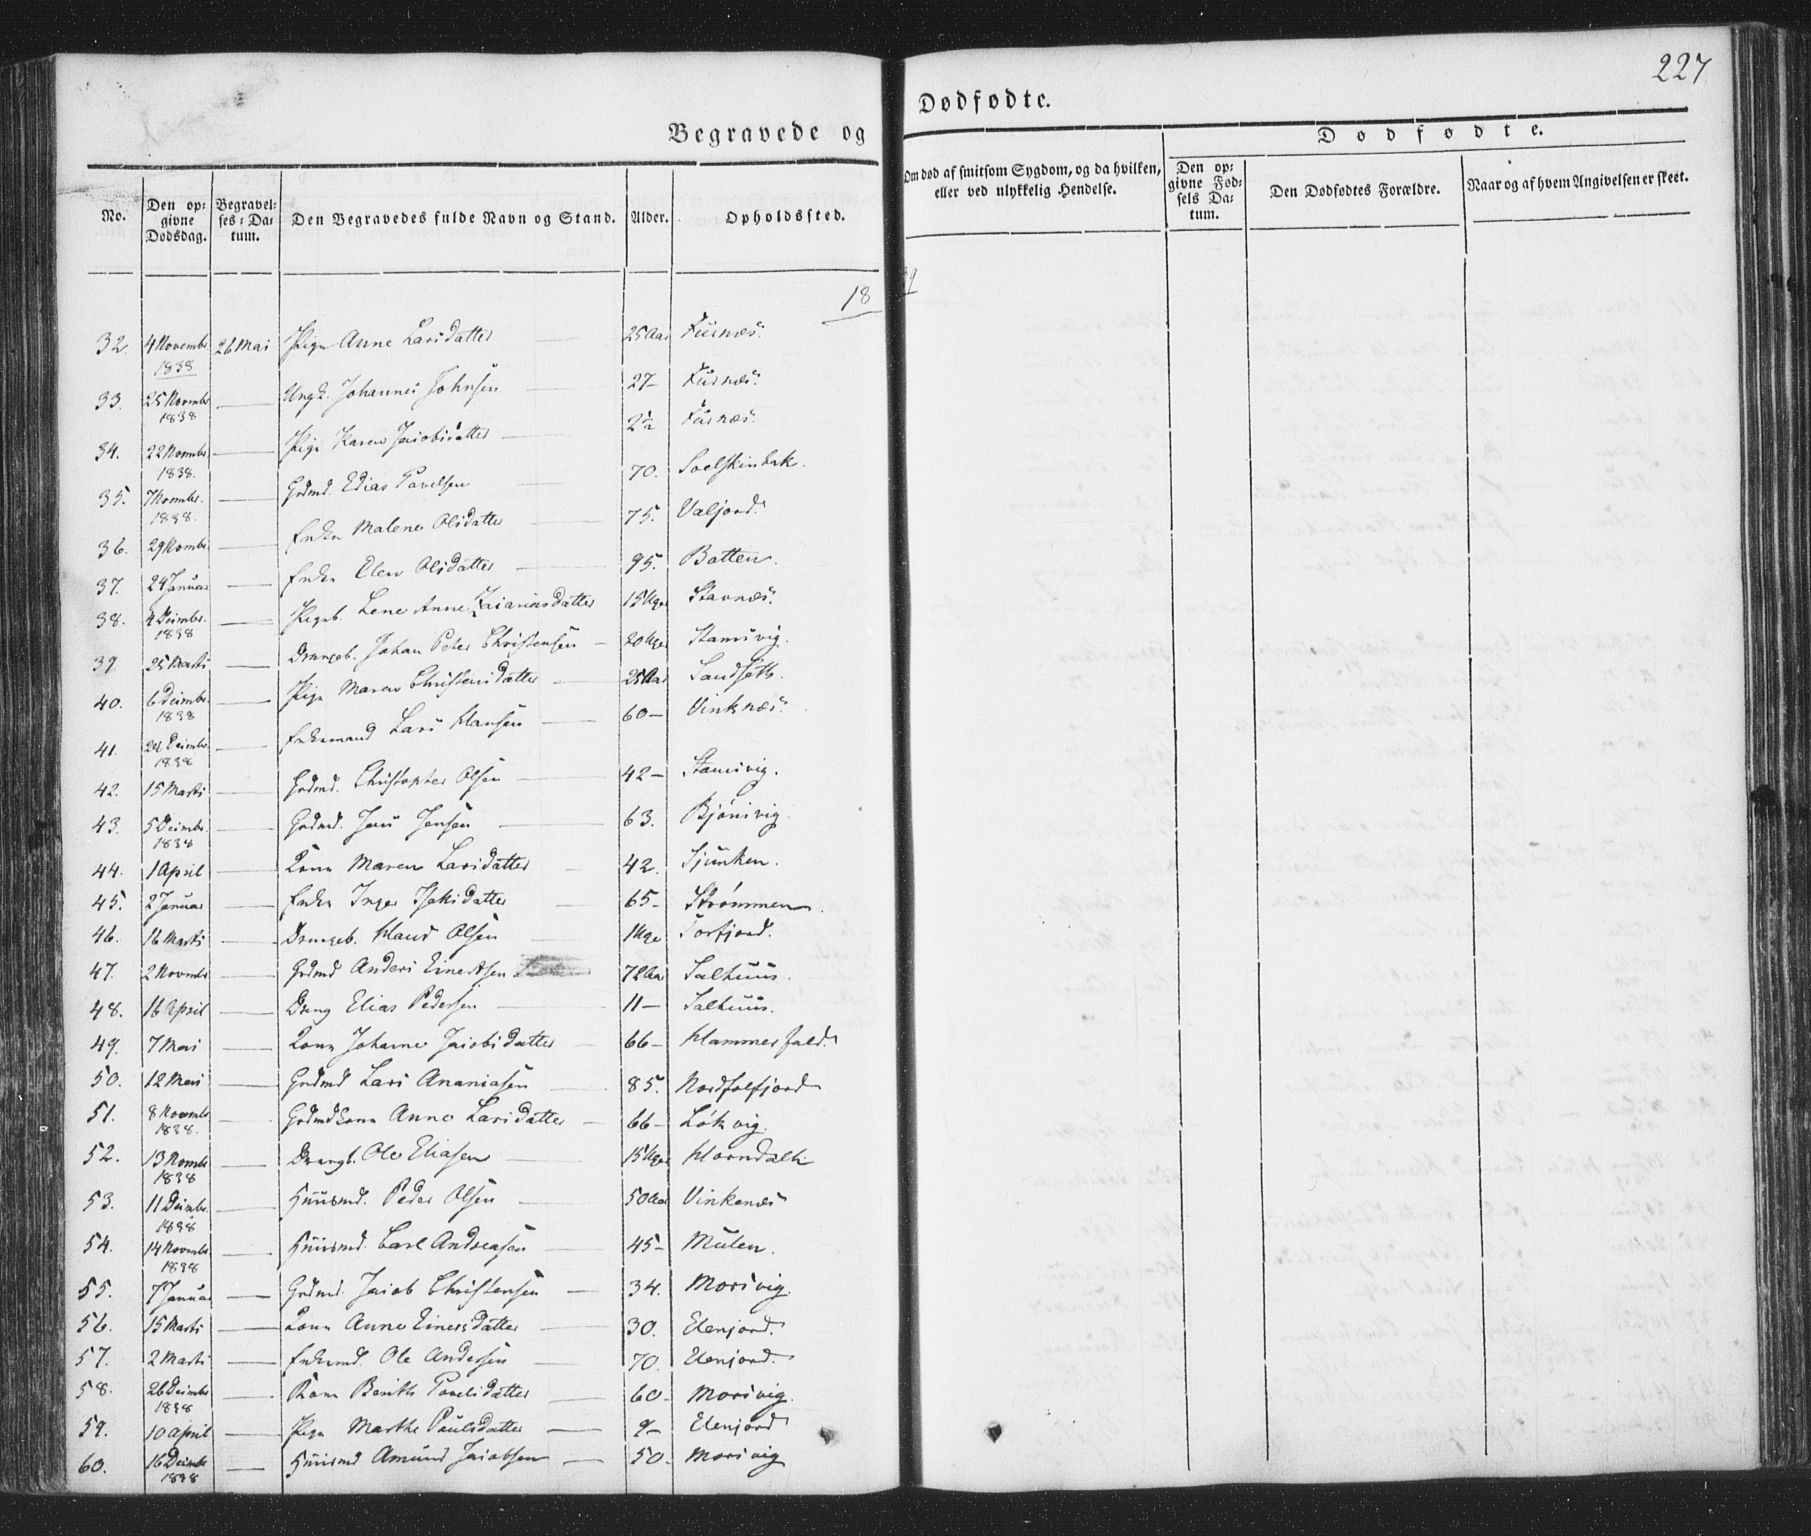 227
Begravede og Dødfødte.
Dødfødte.
No.
Den opgivne Dødsdag.
Begravelses-Datum.
Den Begravedes fulde Navn og Stand.
Alder.
Opholdssted.
Om død af smitsom Sygdom, og da hvilken, eller ved ulykkelig Hendelse.
Den opgivne Fødsels Datum.
Den Dødfødtes Forældre.
Naar og af hvem Angivelsen er skeet.
18
32. 4 Novembr 1838 26 Mai Pige Anne Larsdatter 25 Aar Furnæs.
33. 25 Novmbr 1838 Ungk. Johannes Johnsen 27 - Furnæs.
34. 22 Novmbr 1838. Pige Karen Jacobsdatter 2½ Furnæs.
35. 7 Novmbr. 1838. Grdmd. Edias Povelsen 70. Soelskinbak.
36. 29 Novmbr Enke Malene Olsdatter 75. Valjord.
37. 24 Januar Enke Elen Olsdatter 95. Batten.
38. 4 Decmbr. 1838 Pigeb. Lene Anne Zacariasdatter 15 Uger Stavnæs.
39 25 Marts Drengeb. Johan Peter Christensen 20 Uger Stamsvig.
40. 6 Decmbr 1838 Pige Maren Christensdatter 25 Aar Sandseth.
41. 24 Decmbr 1838 Enkemand Lars Hansen 60 - Vinknæs.
42. 15 Marts Grdmd. Christopher Olsen 42 - Stamsvig.
43. 5 Decmbr. 1838 Grdmd. Jens Jensen 63. Bjørnsvig
44. 1 April Kone Maren Larsdatter 42. Sjunken.
45. 2 Januar Enke Inger Isaksdatter 65 - Strømmen.
46. 16 Marts Drengeb. Hans Olsen 1 Uge Torfjord.
47. 2 Novmbr Grdmd Anders Einertsen 72 Aar Salhuus.
48. 16 April Dreng Elias Pedersen 11 - Salhuus.
49. 7 Mai Kone Johanne Jacobsdatter 66 - Hammerfald.
50. 12 Mai Grdmd Lars Ananiasen 85. Nordfolfjord
51. 8 Novmbr 1838. Grdmdkone Anne Larsdatter 66 - Løkvig.
52. 13 Novmbr 1838 Drengb. Ole Eliasen 15 Uger Horndalh
53. 11 Decmbr. 1838 Huusmd. Peder Olsen 50 Aar Vinkenæs
54. 14 Novmbr 1838 Huusmd. Carl Andreasen 45 - Mulen.
55. 7 Januar Grdmd. Jacob Christensen 34. Morsvig.
56. 15 Marts Kone Anne Einersdatter 30. Elenjord.
57. 2 Marts Enkemd. Ole Andersen 70. Elenjord.
58. 26 Decmbr 1838 Kone Berith Povelsdatter 60 - Morsvig.
59. 10 April Pige Marthe Paulsdatter 9 - Elenjord
60. 16 Decmbr 1838 Huusmd Amund Jacobsen 50 - Morsvig